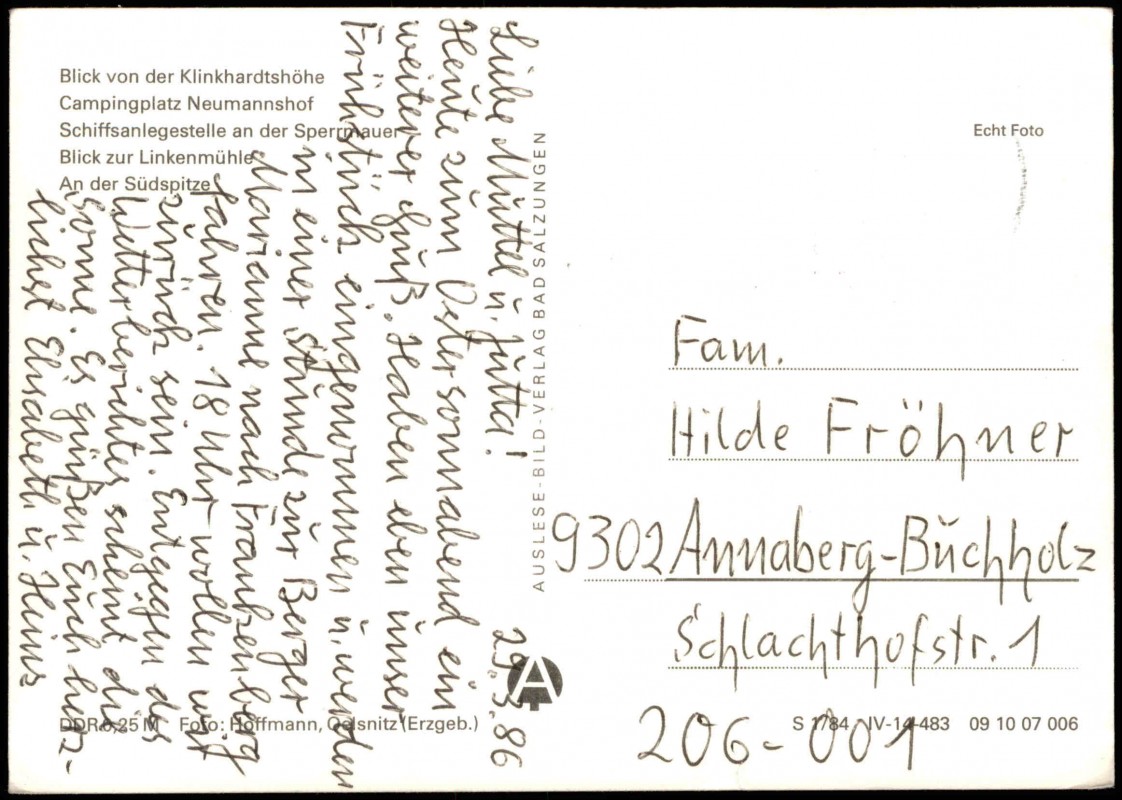 Blick von der Klinkhardtshöhe
Campingplatz Neumannshof
Schiffsanlegestelle an der Sperrmauer
Blick zur Linkenmühle
An der Südspitze
Liebe Muttel u. Jutta!
29.3.86
Heute zum Ostersonnabend ein
weiterer Gruß. Haben eben unser
Frühstück eingenommen u. werden
in einer Stunde zur Berger
Marianne nach Frankenberg
fahren. 18 Uhr wollen wir
zurück sein. Entgegen des
Wetterberichtes scheint die
Sonne. Es grüßen Euch herz-
lichst Elisabeth u. Heinz
AUSLESE-BILD-VERLAG BAD SALZUNGEN
A
Echt Foto
Fam.
Hilde Fröhner
9302 Annaberg-Buchholz
Schlachthofstr. 1
206-001
DDR 0,25 M Foto: Hoffmann, Oelsnitz (Erzgeb.)
S 1784 IV-14-483 09 10 07 006